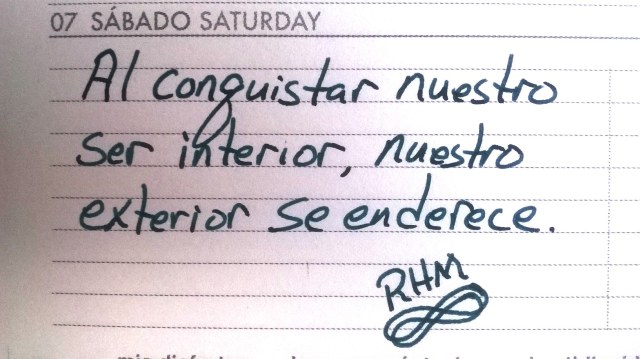 07 SÁBADO SATURDAY
Al conquistar nuestro
ser interior, nuestro
exterior se enderece.
RHM